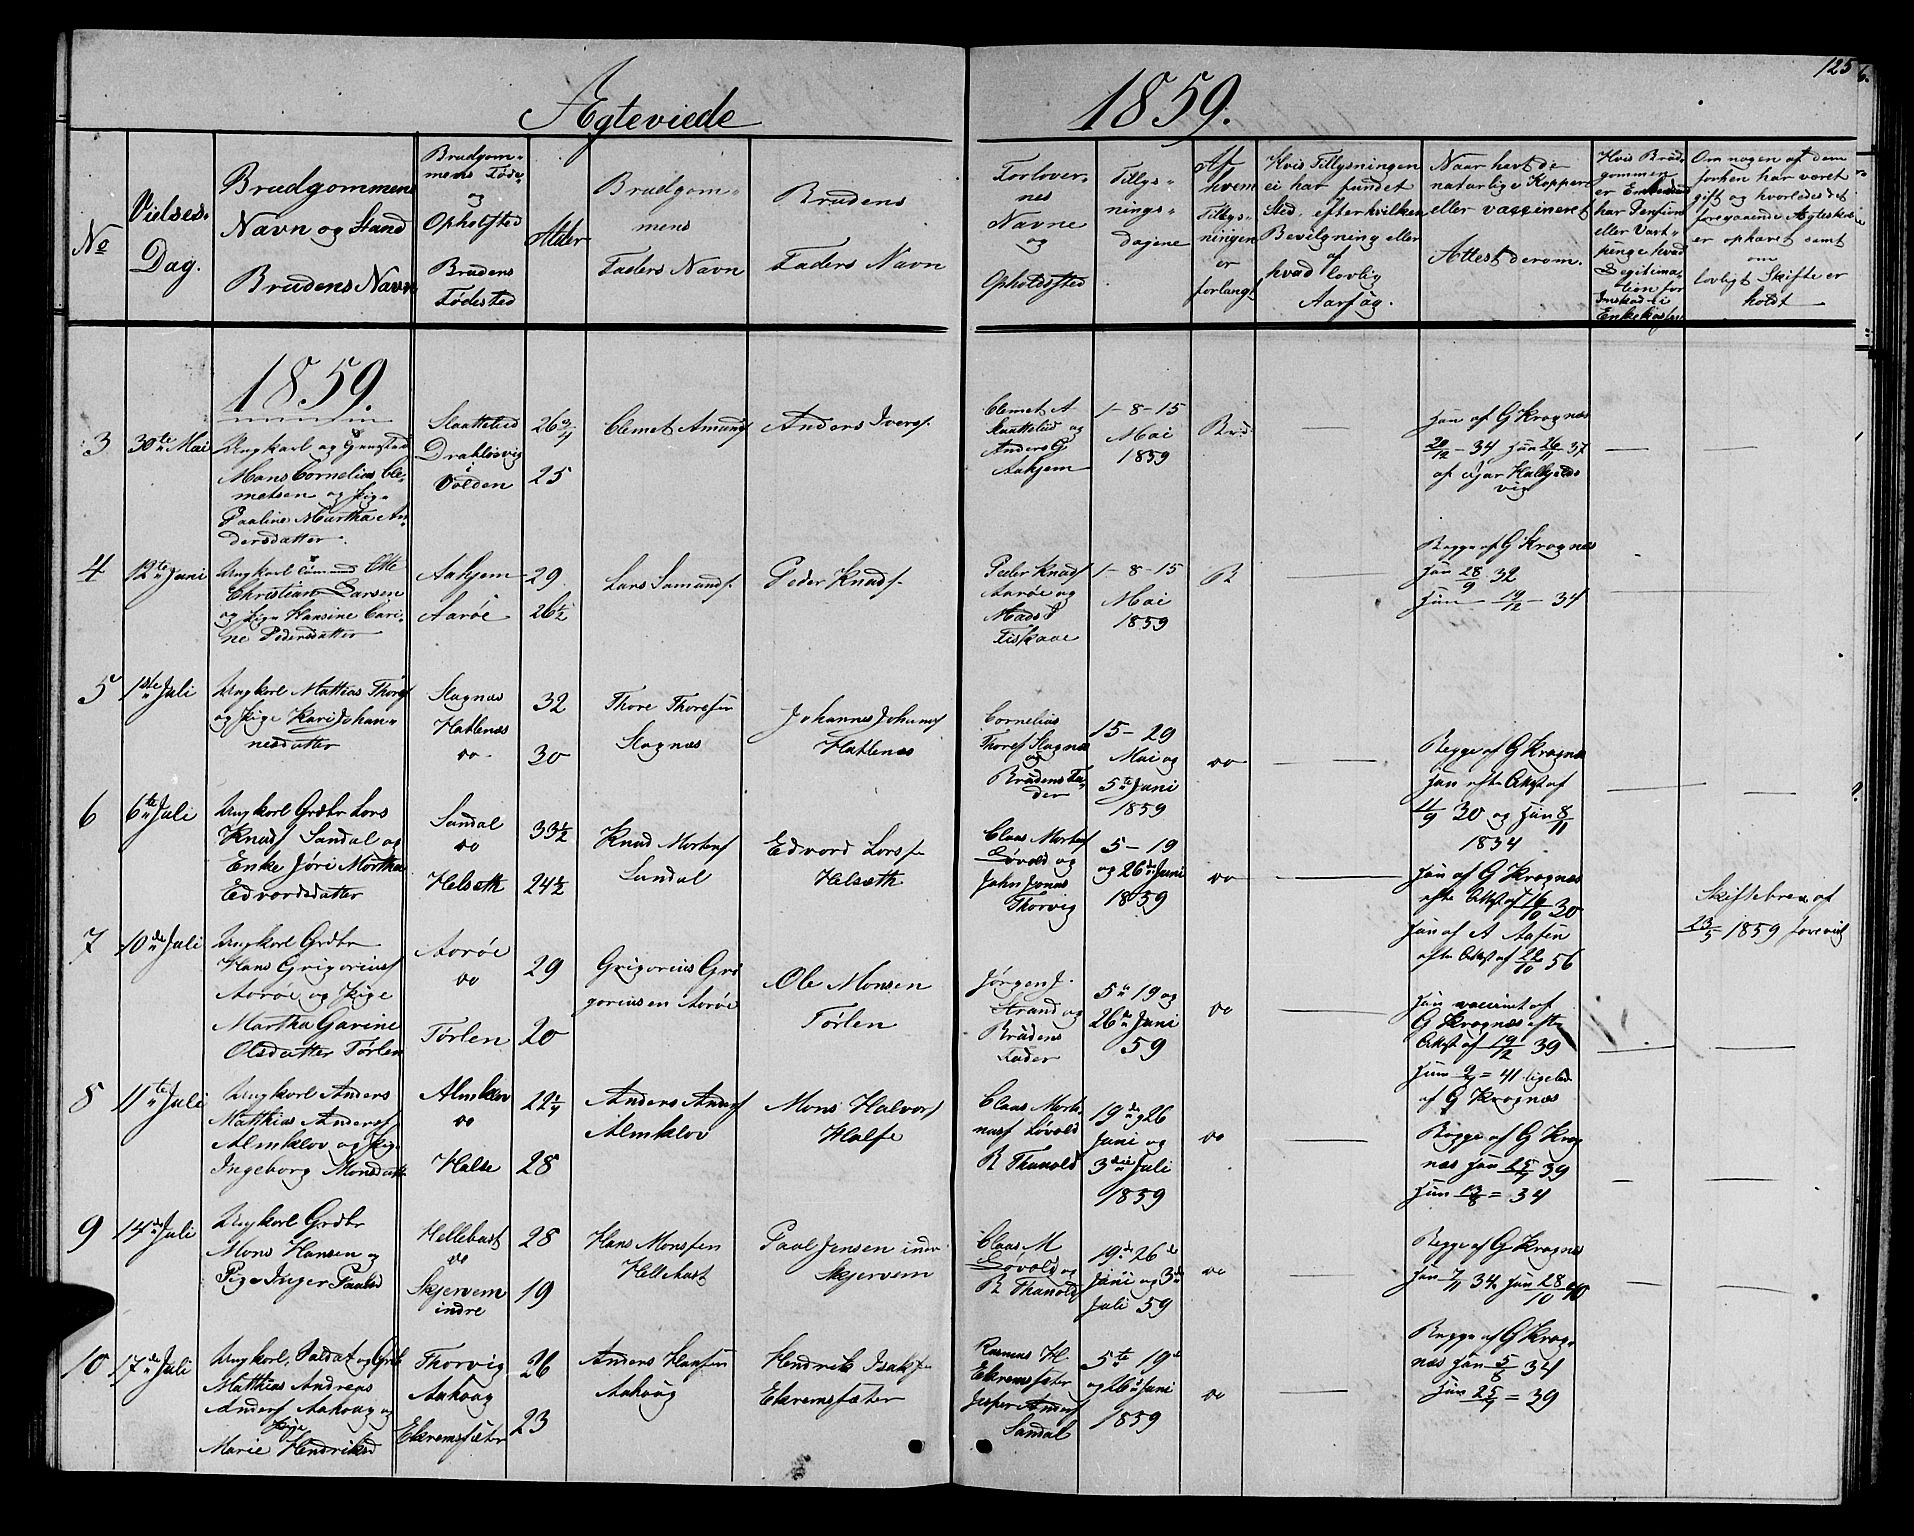 Ægteviede
1859.
125
No
Vielses-
Dag.
Brudgommens
Navn og Stand
Brudens Navn
Brudgom-
mens Føde
og
Opholdsted
Brudens
Fødested
Alder
Brudgom-
mens
Faders Navn
Brudens
Faders Navn
Forlover-
nes
Navne
og
Opholdssted
Tillys-
nings-
dagene
Af
hvem
Tillys-
ningen
er
forlangt
Hvis Tillysningen
ei har fundet
Sted, efter hvilken
Bevilgning eller
af
hvad lovlig
Aarsag.
Naar havt de
naturlige Kopper
eller vaccineret
Attest derom.
Hvis Brud-
gommen
er Enkemand
har Pension
eller Vart-
penge hvad
Legitima-
tion for
Indskud i
Enkekassen
Om nogen af dem
forhen har været
gift og hvorledes det
foregaaende Ægteskab
er ophævet samt
om
lovligt Skifte er
holdt
1859.
3
30te Mai
Ungkarl og
Mons Cornelius Cle-
metsen og Pige
Pauline Martha An-
dersdatter.
Slaattelid
Drabløsvig
i
Volden
26 3/4
25
Clemet Amunds
Anders Ivers.
Clemet A
Slaattelid og
Anders G
Aahjem
1-8-15
Mai
1859
Brd.
Han af G Kragnæs
20/12 - 34 Hun 26/11 37
af Ejar Kalkjelds
vig
4
12te Juni
Ungkarl Otte
Christian Larsen
og Pige Hansine Cari-
ne Pedersdatter
Aahjem
Aarøe
29
26 1/2
Lars Samunds.
Peder Knuds.
Peder Knuds
Aarøe og
Mads P
Fiskaae
1-8-15
Mai
1859
B
Begge af G Kragnæs
Han 28/9 32
Hun 19/12 - 34
5
1ste Juli
Ungkarl Mattias Thores
og Pige Kari Johan-
nesdatter
Slagnæs
Hatlenæs
do
32
30
Thore Thoresen
Slagnæs
Johannes Johans
Hatlenæs
Cornelius
Thores Slagnæs
og
Brudens Fa-
der
15-29
Mai og
5te Juni
1859
do
Begge af G Kragnæs
Han efter Attest af
4/9 30 og Hun 8/11
1834
6
6te Juli
Ungkarl Grdbr Lars
Knuds Sandal og
Enke Jøri Martha
Edvardsdatter
Sandal
do
Helsæth
33 1/2
24 1/2
Knud Mortens
Sandal
Edvard Lars
Helsæth
Claas Mortens
Løvold og
John Jonas
Thorvig
5-19
og 26de Juni
1859
do
Han af G Kragnæs
efter Attest af 16/10 30
Hun af A Aasen
efter Attest af 22/10 56
Skiftebrev af
23/5 1859 forevist
7
10de Juli
Ungkarl Grdbr
Hans Grigorius
Aarøe og Pige
Martha Garine
Olsdatter Tørlen
Aarøe
do
Tørlen
29
20
Grigorius Gri
goriusen Aarøe
Ole Monsen
Tørlen
Jørgen J.
Strand og
Brudens
Fader
5te 19 og
26de Juni
59
do
Han vaccinet af
G Kragnæs efter
Attest af 19/12 39
Hun 9/7 = 41 ligeled
af G Kragnæs
8
11te Juli
Ungkarl Anders
Matthias Anders
Almklov og Pige
Ingeborg Monsdatte
Almklov
do
Halse
22 1/4
28
Anders Anders
Almklov
Mons Halvors
Halse
Claas Morte
nus Løvold
R Thunold
19de og 26
Juni og
3die Juli
1859
do
Begge af G Krag
næs Han 25/7 39
Hun 13/8 = 34
9
14de Juli
Ungkarl Grdbr
Mons Hansen og
Pige Inger Paulsd
Hellebust
do
Skjervem
indre
28
19
Hans Monssen
Hellebust
Paul Jensen indre
Skjervem
Claas M
Løvold og
R Thunold
19de 26de
Juni og 3de
Juli 59
do
Begge af G Kragnæs
Han 7/11 34 Hun 28/10 40
10
17de Juli
Ungkarl, Soldat og Grdb
Matthias Andreas
Anders Aakvag og
Pige
Marie Hendriksd
Thorvig
Aakvag
Ekremsæter
26
23
Anders Hansen
Aakvag
Hendrik Isaks
Ekremsæter
Rasmus H
Ekremsæter
Jesper Anders
Sandal
5te 19de
og 26de Juni
1859
do
Begge af G Krag-
næs Han 5/8 34
Hun 25/7 = 39